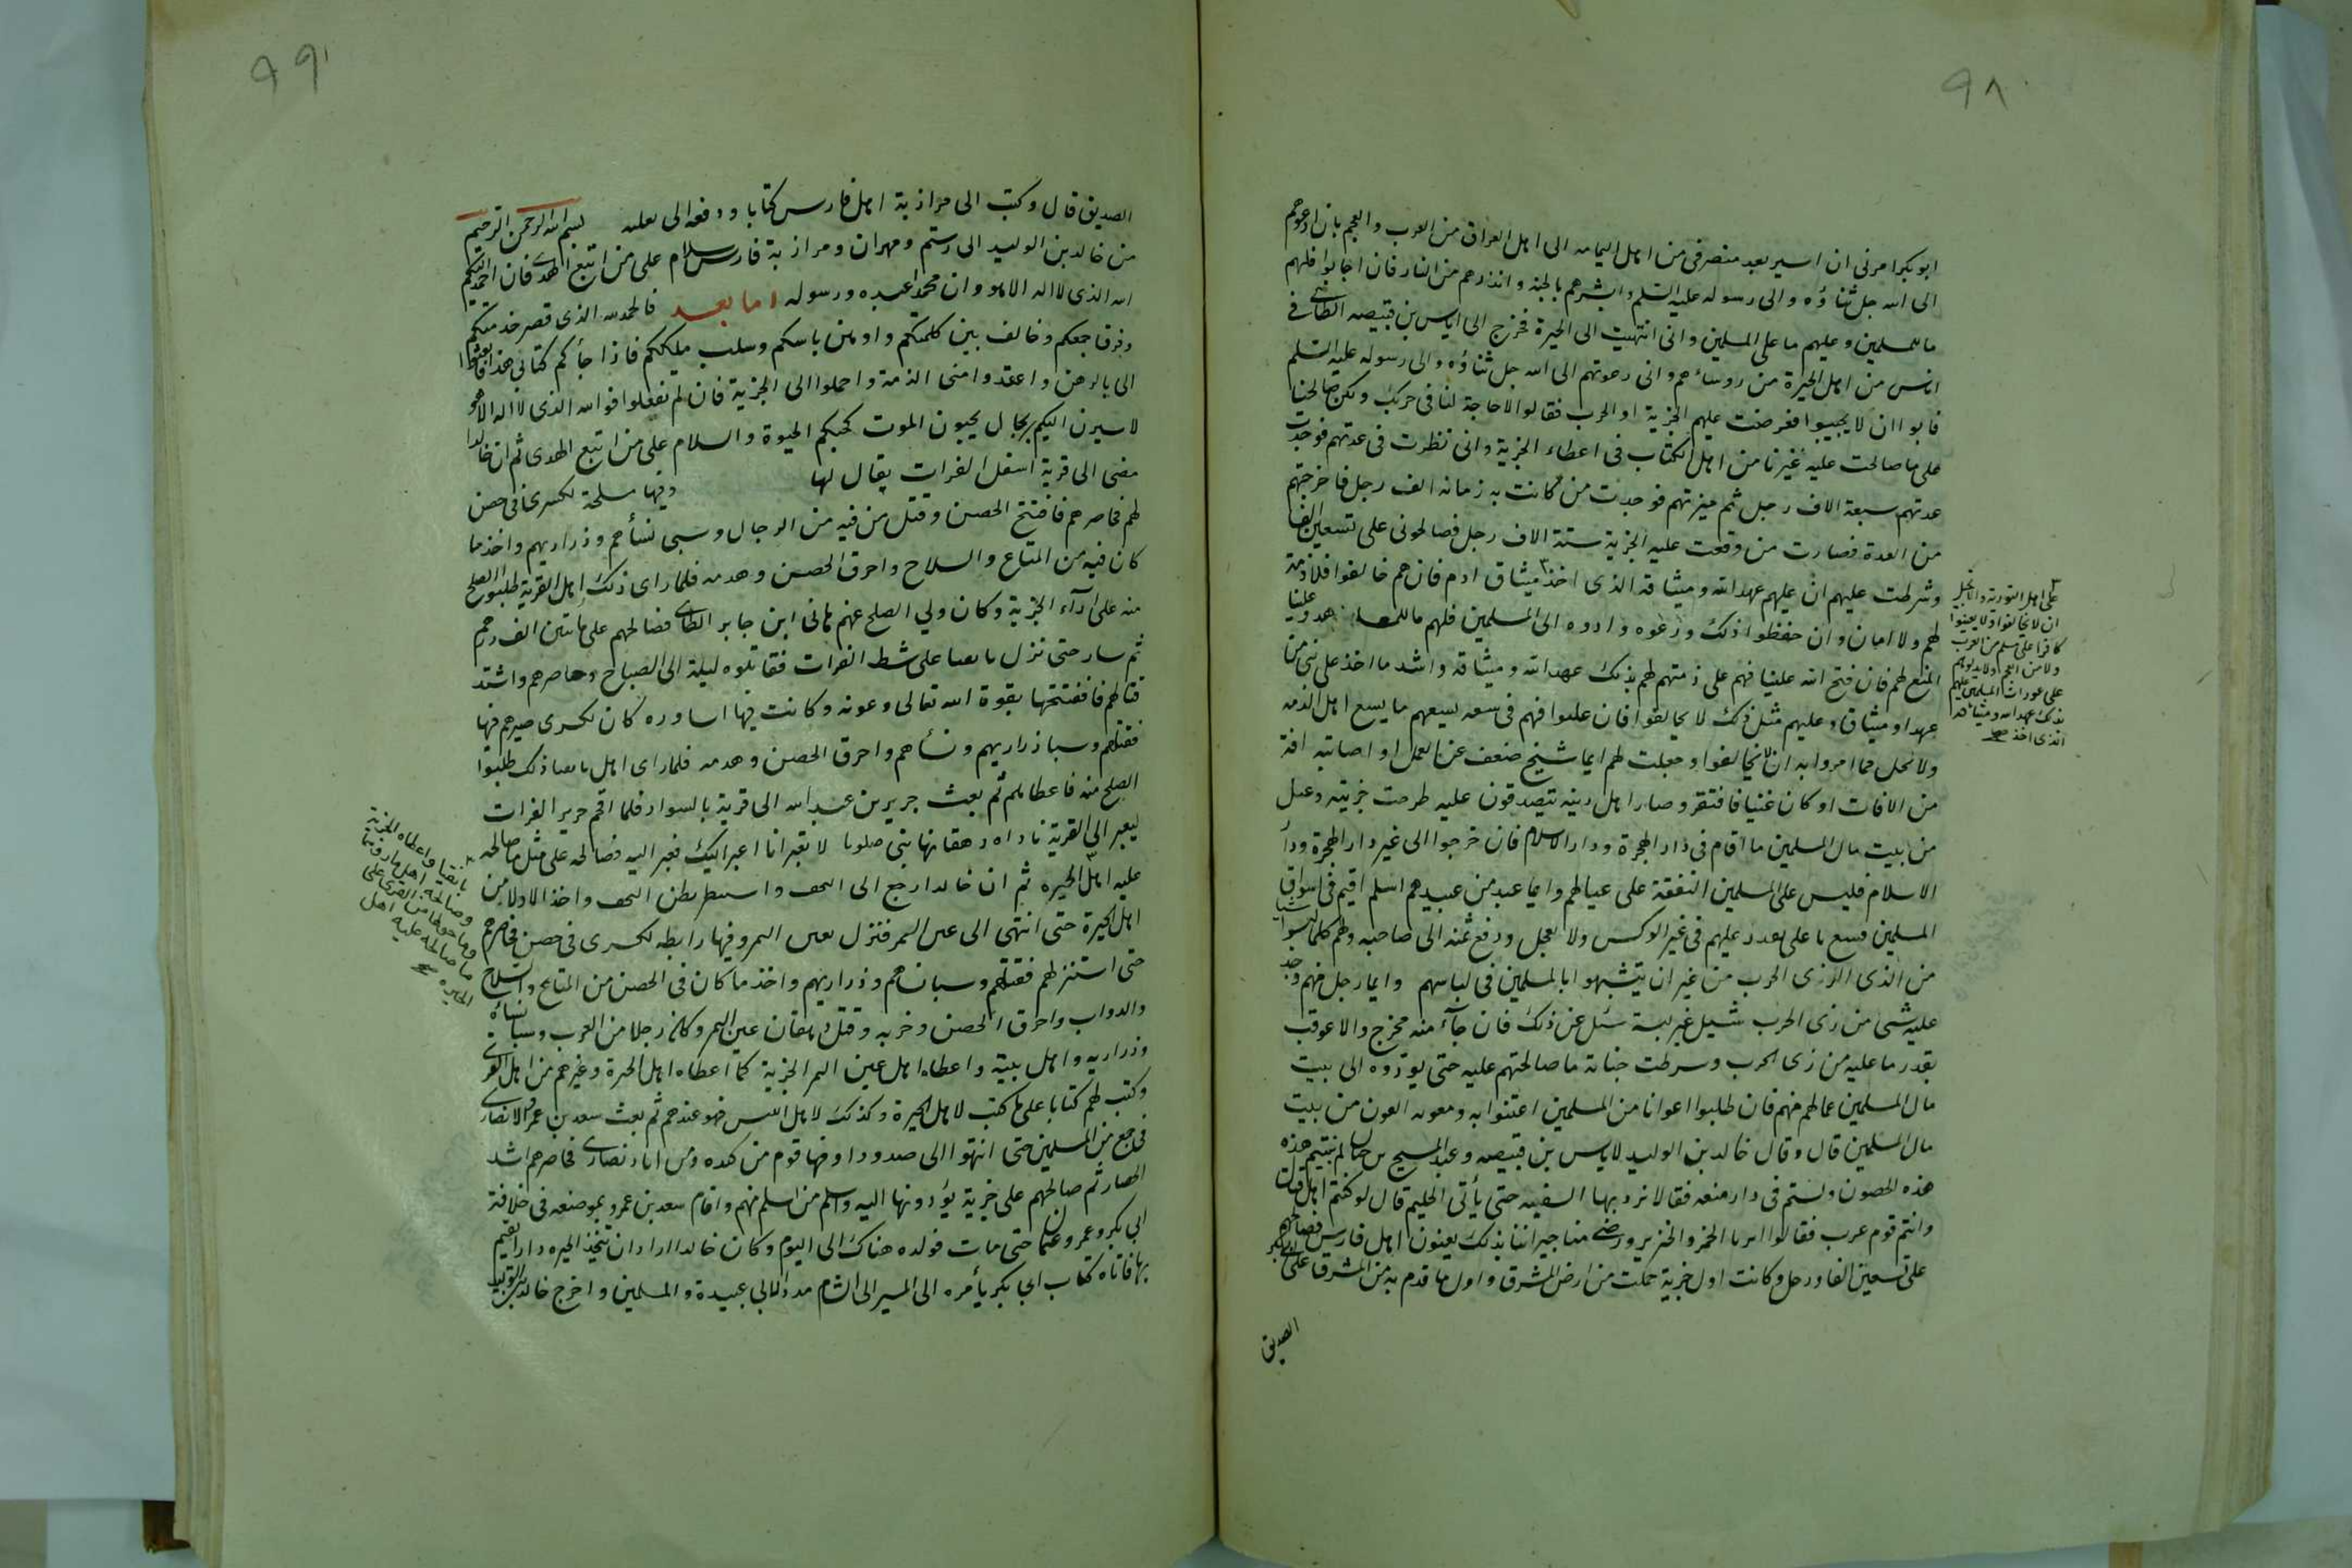 ٩٨
ابو بكر امرني ان اسير بعد منصرفي من اهل اليمامه الى اهل العراق من العرب والعجم بان ادعوهم
الى الله جل ثناؤه والى رسوله عليه السلم وابشرهم بالجنة وانذرهم من النار فان اجابوا فلهم
ما للمسلمين وعليهم ما على المسلمين واني انتهيت الى الحيرة فخرج الى اياس بن قبيصه الطائي في
اناس من اهل الحيرة من روساءهم واني دعوتهم الى الله جل ثناؤه والى رسوله عليه السلم
فابوا ان لا يجيبوا فعرضت عليهم الجزية او الحرب فقالوا لا حاجة لنا في حربك ولكن صالحنا
على ما صالحت عليه غيرنا من اهل الكتاب في اعطاء الجزية واني نظرت في عدتهم فوجدت
عدتهم سبعة الاف رجل ثم ميزتهم فوجدت من كانت به زمانه الف رجل فاخرجتهم
من العدة فصارت من وقعت عليه الجزية ستة الاف رجل فصالحوني على تسعين الفا
وشرطت عليهم ان عليهم عهد الله وميثاقه الذي اخذ ميثاق ادم فان هم خالفوا فلا ذمة
لهم ولا امان وان حفظوا ذلك ورعوه وادوه الى المسلمين فلهم ما للمعاهد وعلينا
المنع لهم فان فتح الله علينا فهم على ذمتهم لهم بذلك عهد الله وميثاقه واشد ما اخذ على نبي من
عهد او ميثاق وعليهم مثل ذلك لا يخالفوا فان غلبوا فهم في سعه يسعهم ما يسع اهل الذمه
ولا نحل مما امروا به ان لا يخالفوا وجعلت لهم ايما شيخ ضعف عن العمل او اصابته افة
من الافات او كان غنيا فافتقر وصار اهل دينه يتصدقون عليه طرحت جزيته وعيل
من بيت مال المسلمين ما اقام في دار الهجرة ودار الاسلام فان خرجوا الى غير دار الهجرة ودار
الاسلام فليس على المسلمين النفقة على عيالهم وايما عبد من عبيدهم اسلم اقيم في اسواق
المسلمين فبيع باعلى يقدر عليهم في غير الوكس ولا تعجل ودفع ثمنه الى صاحبه ولهم كلما لبسوا
من الذي الا زي الحرب من غير ان يتشبهوا بالمسلمين في لباسهم وايما رجل منهم وجد
عليه شئ من زي الحرب سئل غير لبسة سئل عن ذلك فان جآء منه بمخرج والا عوقب
بقدر ما عليه من زي الحرب وشرطت جباية ما صالحتهم عليه حتى يؤدوه الى بيت
مال المسلمين عمالهم منهم فان طلبوا اعوانا من المسلمين اعتنوا به ومعونه العون من بيت
مال المسلمين قال وقال خالد بن الوليد لاياس بن قبيصه وعبد المسيح بن حيان لم بنيتم هذه
هذه الحصون ولستم في دار منعه فقالا نرد بها السفيه حتى يأتي الحليم قال لو كنتم اهل قتال
وانتم قوم عرب فقالوا اثرنا الخمر والخنزير ورضي منا جيراننا بذلك يعنون اهل فارس فصالحهم
على تسعين الفا ورحل وكانت اول جزية حملت من ارض المشرق واول ما قدم به من المشرق على ابي بكر
الصديق
على اهل التورية والانجيل
ان لا يخالفوا ولا يعينوا
كافرا على مسلم من العرب
ولا من العجم ولا يدلوهم
على عورات المسلمين عليهم
بذلك عهد الله وميثاقه
الذي اخذ صح
٩٩
الصديق قال وكتب الى مرازبة اهل فارس كتابا ودفعه الى بقيله بسم الله الرحمن الرحيم
من خالد بن الوليد الى رستم ومهران ومرازبة فارس سلام على من اتبع الهدى فاني احمد اليكم
الله الذي لا اله الا هو وان محمدا عبده ورسوله اما بعد فالحمد لله الذي قصر خدمتكم
وفرق جمعكم وخالف بين كلمتكم واوهن باسكم وسلب ملككم فاذا جأكم كتابي هذا فابعثوا
الى بالرهن واعتقدوا مني الذمة واحملوا الى الجزية فان لم تفعلوا فوالله الذي لا اله الا هو
لاسيرن اليكم برجال يحبون الموت كحبكم الحيوة والسلام على من اتبع الهدى ثم ان خالدا
مضى الى قرية اسفل الفرات يقال لها وفيها مسلحة لكسرى في حصن
لهم فحاصرهم فافتتح الحصن وقتل من فيه من الرجال وسبى نسأهم وذراريهم واخذ ما
كان فيه من المتاع والسلاح واحرق الحصن وهدمه فلما راى ذلك اهل القرية طلبوا الصلح
منه على ادآء الجزية وكان ولي الصلح عنهم هاني ابن جابر الطائي فصالحهم على ماىتين الف درهم
ثم سار حتى نزل بانقيا على شط الفرات فقاتلوه ليلة الى الصباح وحاصرهم واشتد
قتالهم فافتتحها بقوة الله تعالى وعونه وكانت فيها اساوره كان كسرى صيرهم فيها
فقتلهم وسبا ذراريهم ونسأهم واحرق الحصن وهدمه فلما راى اهل بانقيا ذلك طلبوا
الصلح منه فاعطاهم ثم بعث جرير بن عبد الله الى قرية بالسواد فلما اقحم جرير الفرات
ليعبر الى القرية ناداه دهقانها بني صلوبا لا تعبر انا اعبر اليك فعبر اليه فصالحه على مثل ما صالحه
عليه اهل الحيره ثم ان خالدا رجع الى النجف واستبطن بطن النجف واخذ الادلا من
اهل الحيرة حتى انتهى الى عين التمر فنزل بعين التمر وفيها رابطه لكسرى في حصن فحاصرهم
حتى استنزلهم فقتلهم وسبا نسأهم وذراريهم واخذ ما كان في الحصن من المتاع والسلاح
والدواب واحرق الحصن وخربه وقتل دهقان عين التمر وكان رجلا من العرب وسبا نسأه
وذراريه واهل بيته واعطاه اهل عين التمر الجزية كما اعطاه اهل الحيرة وغيرهم من اهل القرى
وكتب لهم كتابا على ما كتب لاهل الحيرة وكذلك لاهل اليس فهو عندهم ثم بعث سعد بن عمرو الانصاري
في جمع من المسلمين حتى انتهوا الى صدودا وفيها قوم من كنده ومن اياد نصارى فحاصرهم اشد
الحصار ثم صالحهم على جزية يؤدونها اليه واسلم من اسلم منهم واقام سعد بن عمرو بموضعه في خلافة
ابي بكر وعمر وعثمان حتى مات فولده هناك الى اليوم وكان خالدا اراد ان يتخذ الحيره دارا يقيم
بها فاتاه كتاب ابي بكر يأمره الى المسير الى الشام مددا لابي عبيدة والمسلمين واخرج خالد بن الوليد
بانقيا واعطاه الجزية
وصالحه اهل ما
وما حولها من القرى على
ما صالحه عليه اهل
الحيره صح